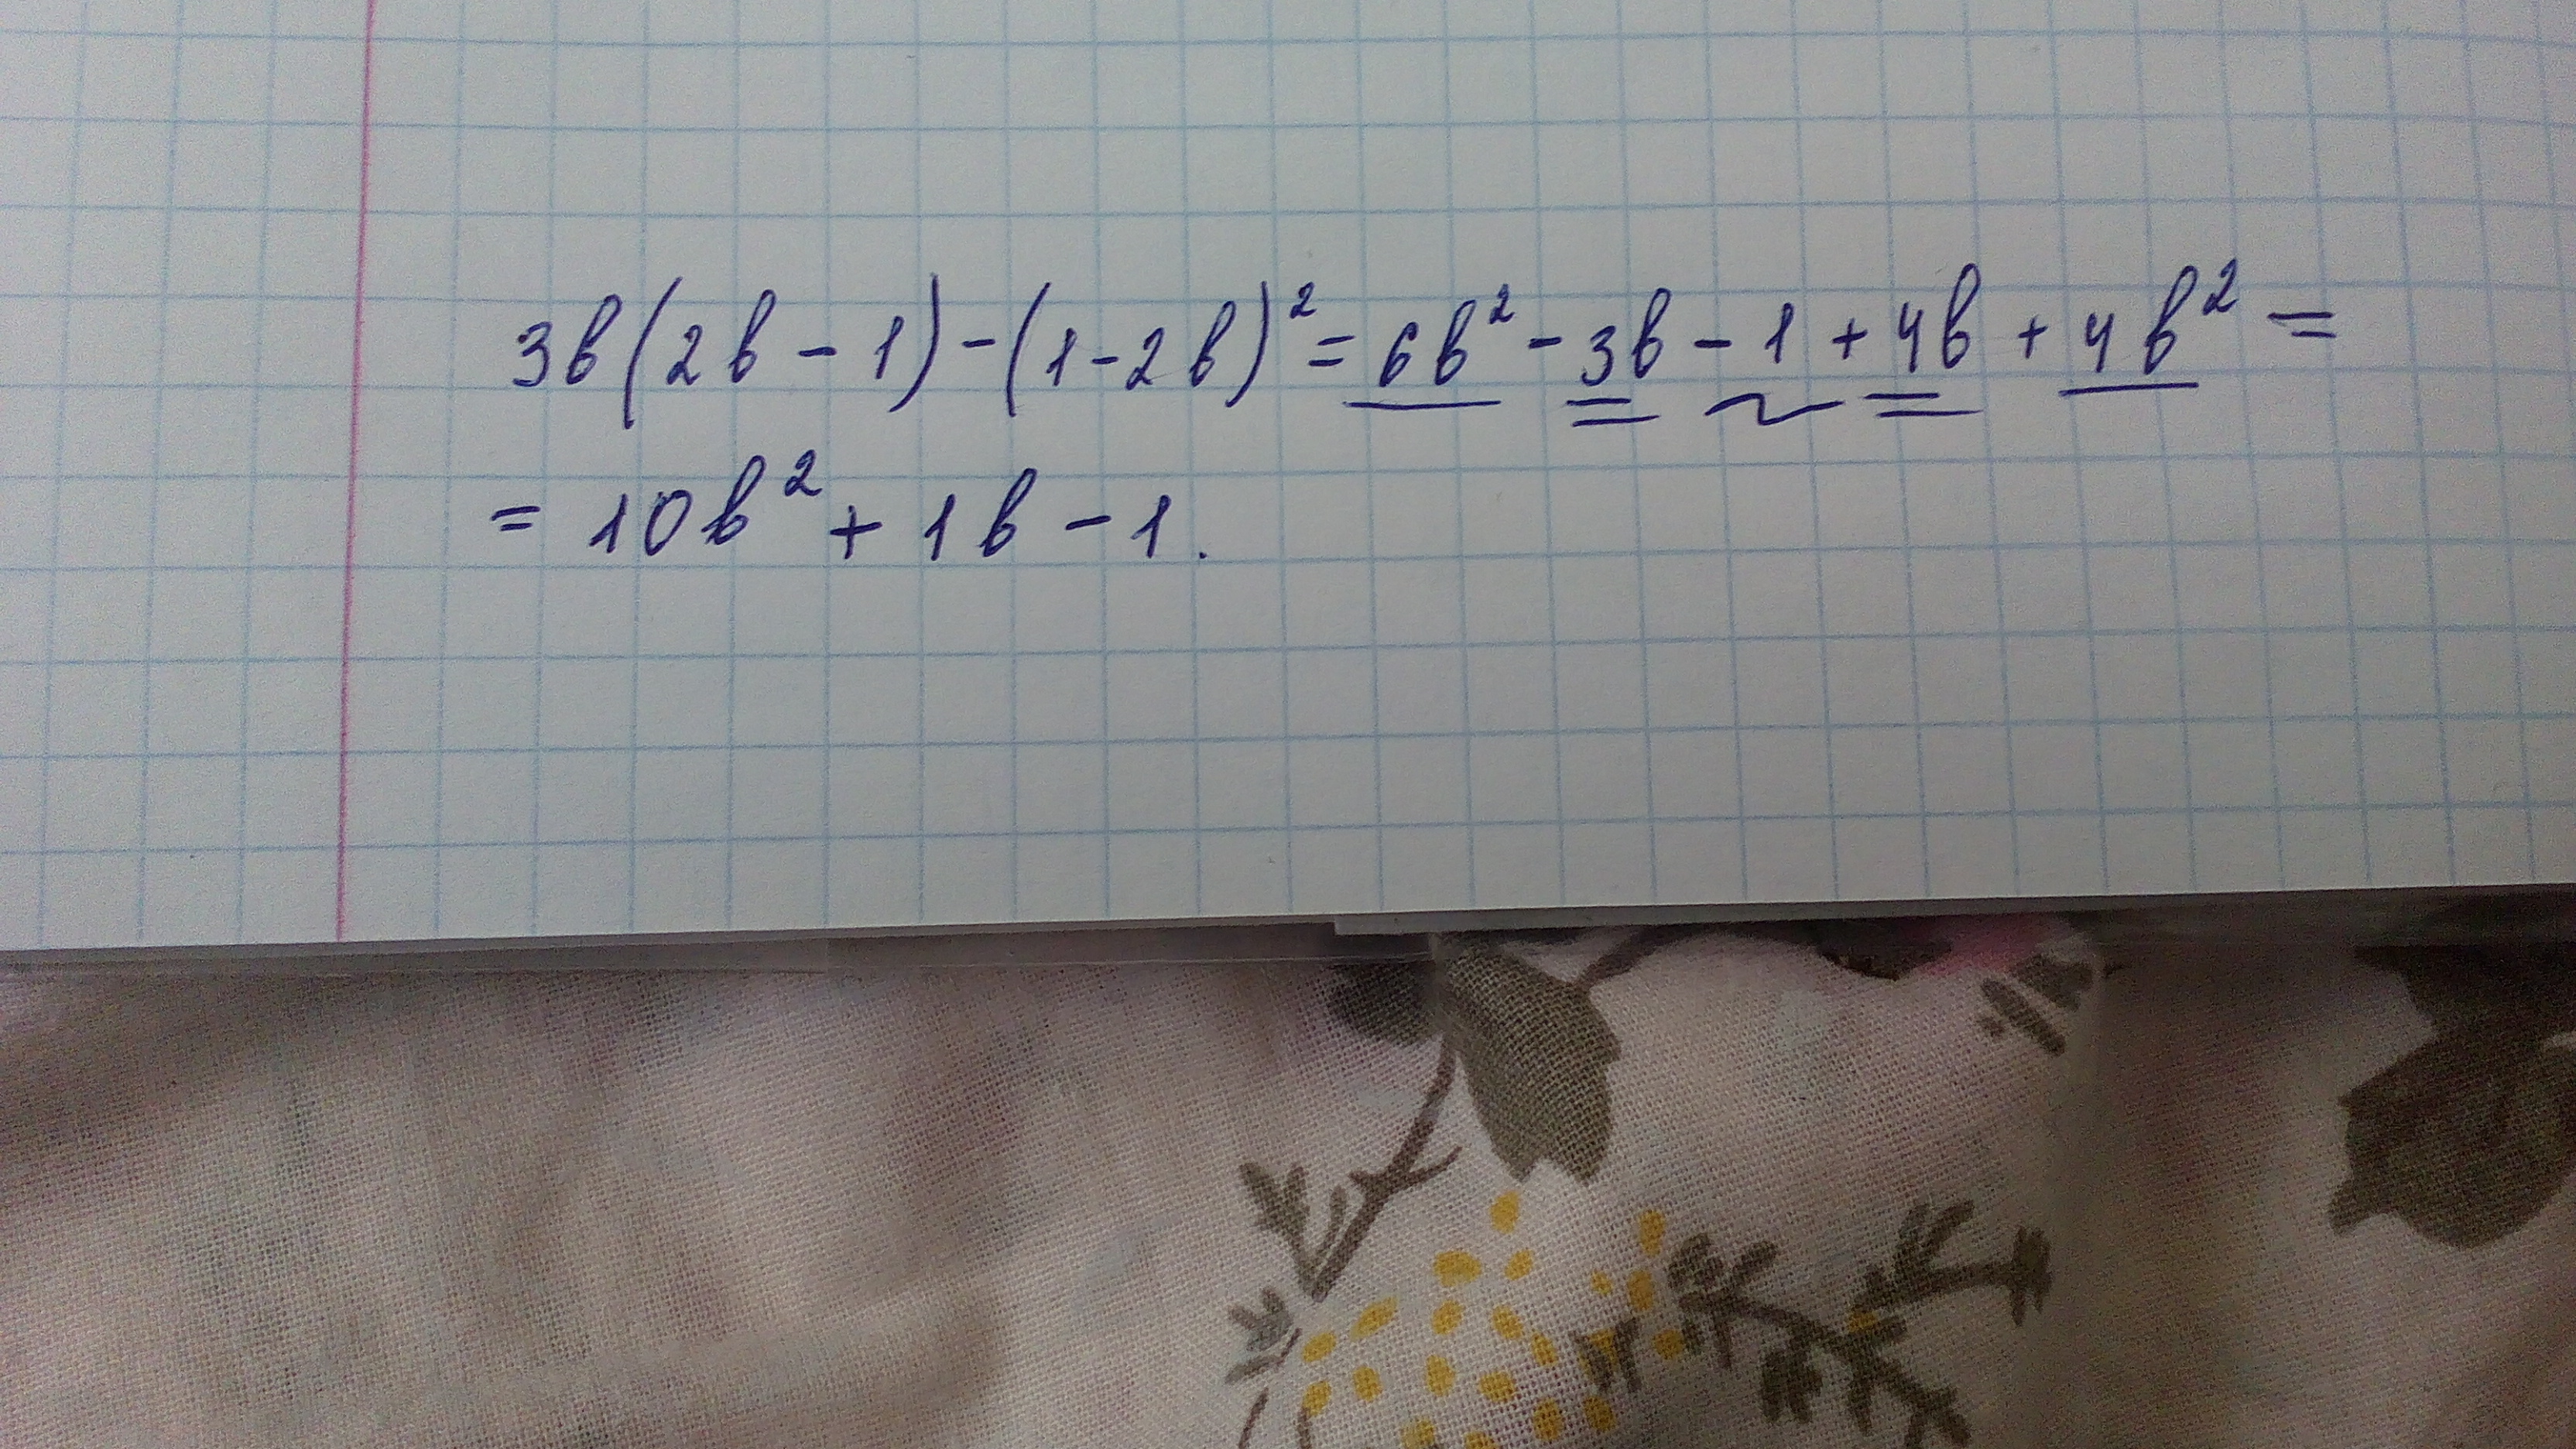 3b(2b - 1) - (1 - 2b)² = 6b² - 3b - 1 + 4b + 4b² =
= 10b² + 1b - 1.